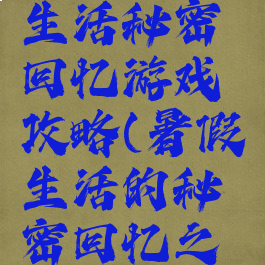 生活秘密
回忆游戏
攻略(暑假
生活的秘
密回忆之